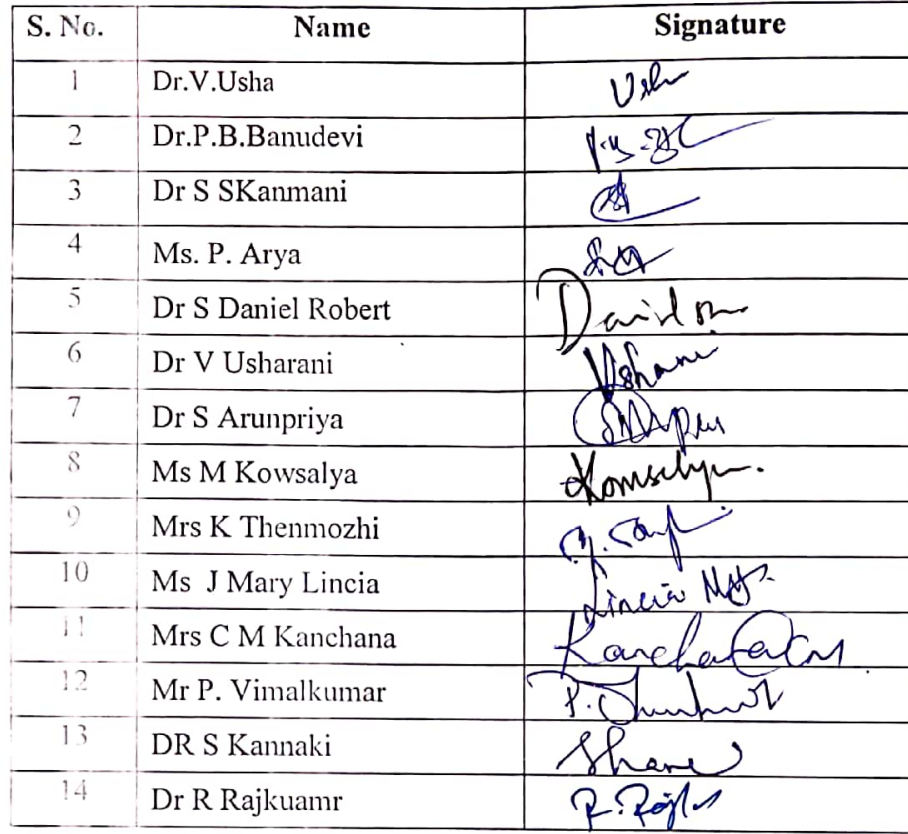 S. No. Name Signature
1 Dr.V.Usha Usha
2 Dr.P.B.Banudevi
3 Dr S SKanmani
4 Ms. P. Arya
5 Dr S Daniel Robert
6 Dr V Usharani
7 Dr S Arunpriya
8 Ms M Kowsalya Kowsalya.
9 Mrs K Thenmozhi
10 Ms J Mary Lincia Lincia
11 Mrs C M Kanchana
12 Mr P. Vimalkumar
13 DR S Kannaki
14 Dr R Rajkuamr